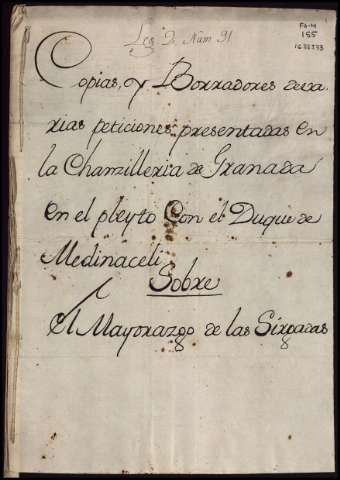 Leg 9 Num 91
FA-M
155
Copias, y Borradores de va-
rias peticiones presentadas en
la Chanzilleria de Granada
en el pleyto Con el Duque de
Medinaceli
Sobre
El Mayorazgo de las Sirgadas